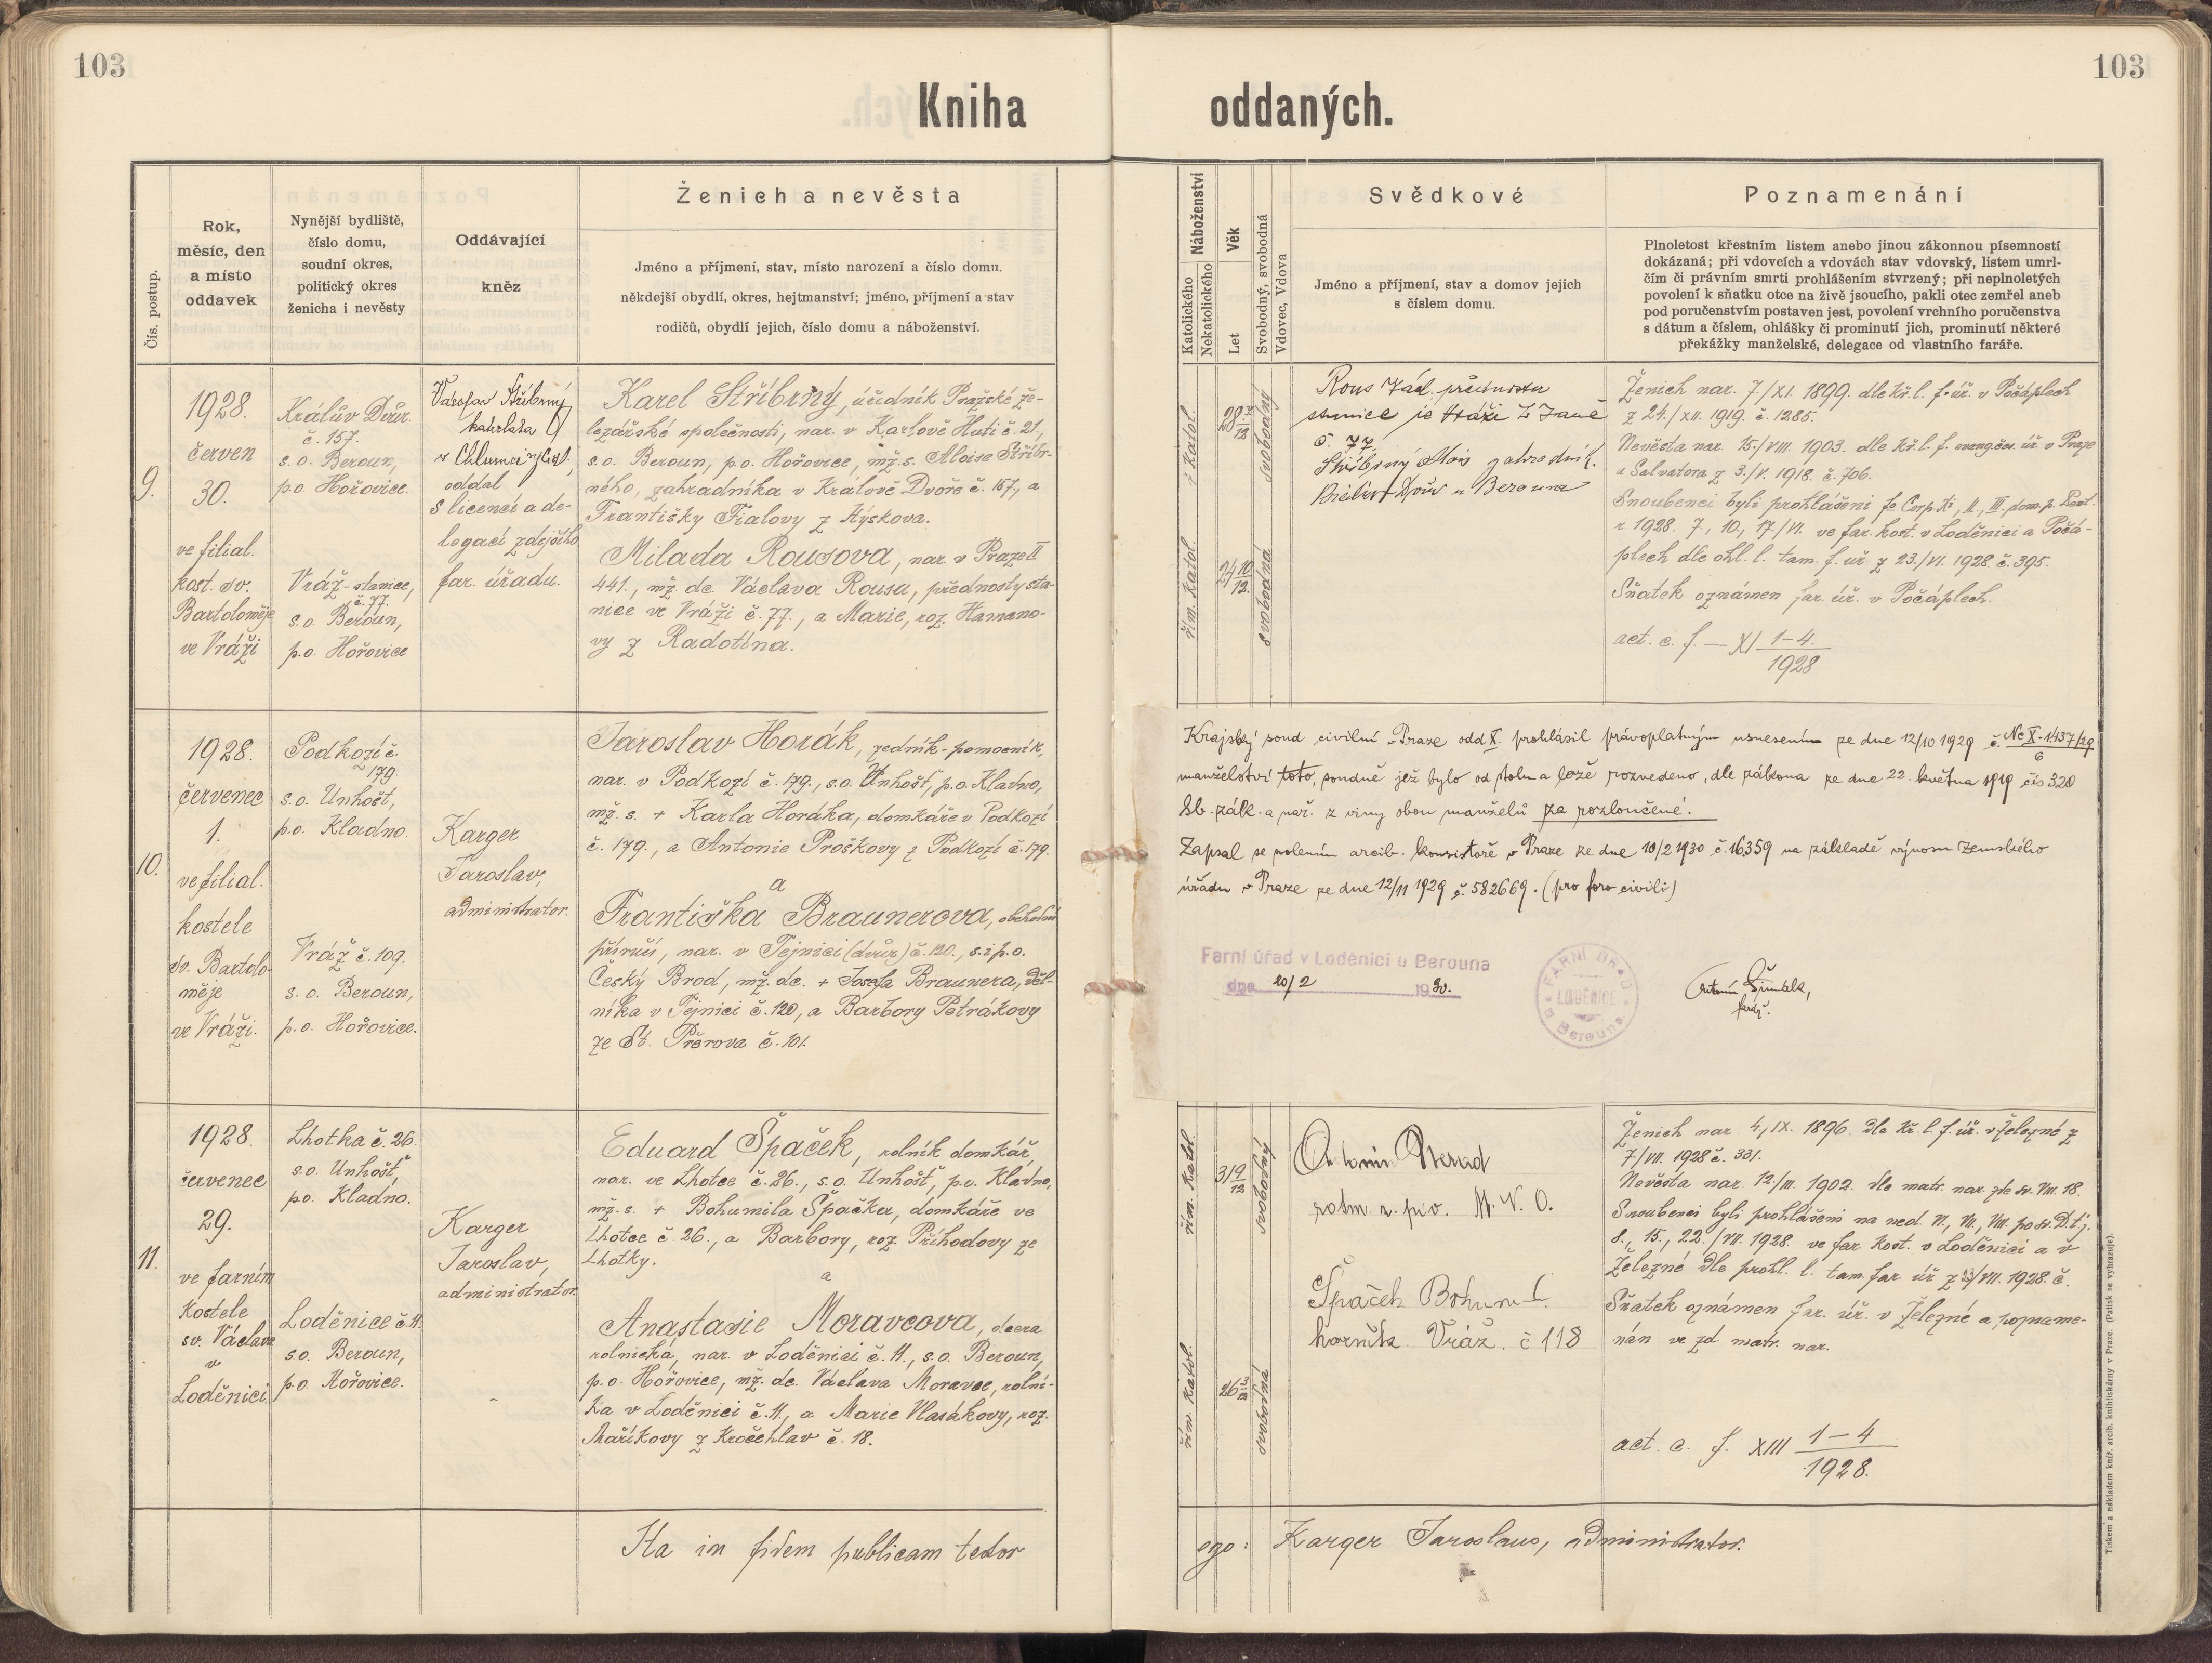 103
103
Kniha
oddaných.
Čís. postup.
Rok,
měsíc, den
a místo
oddavek
Nynější bydliště,
číslo domu,
soudní okres,
politický okres
ženicha i nevěsty
Oddávající
kněz
Ženich a nevěsta
Jméno a příjmení, stav, místo narození a číslo domu.
někdejší obydlí, okres, hejtmanství; jméno, příjmení a stav
rodičů, obydlí jejich, číslo domu a náboženství.
Náboženství
Katolického
Nekatolického
Věk
Let
Svobodný, svobodná
Vdovec, Vdova
Svědkové
Jméno a příjmení, stav a domov jejich
s číslem domu.
Poznamenání
Plnoletost křestním listem anebo jinou zákonnou písemností
dokázaná; při vdovcích a vdovách stav vdovský, listem umrl-
čím či právním smrti prohlášením stvrzený; při neplnoletých
povolení k sňatku otce na živě jsoucího, pakli otec zemřel aneb
pod poručenstvím postaven jest, povolení vrchního poručenstva
s dátum a číslem, ohlášky či prominutí jich, prominutí některé
překážky manželské, delegace od vlastního faráře.
9.
1928.
červen
30.
ve filial.
kost. sv.
Bartoloměje
ve Vráži
Králův Dvůr.
č. 157.
s. o. Beroun,
p.o. Hořovice.
Vráž-stanice,
č. 77.
s. o. Beroun,
p.o. Hořovice
Stříbrný
oddal
s licencí a de-
legací zdejšího
far. úřadu.
Karel Stříbrný, úředník Pražské že-
lezářské společnosti, nar. v Karlově Huti č. 21,
s.o. Beroun, p.o. Hořovice, mž. s. Aloise Stříbr-
ného, zahradníka v Králově Dvoře č. 157, a
Františky Fialovy z Hýskova.
Milada Rousova, nar. v Praze II
441., mž. dc. Václava Rousa, přednosty sta-
nice ve Vráži č. 77., a Marie, roz. Hamano-
vy z Radotína.
ř. katol.
svobodný
řím. katol.
svobodná
Rous
č. 77
Stříbrný Alois zahradník.
u Berouna
Ženich nar. 7./XI. 1899. dle kř. l. f. úř. v Počáplech
z 24./XII. 1919. č. 1285.
Nevěsta nar. 15./VIII. 1903. dle kř. l. f. evang. čes. úř. v Praze
u Salvatora z 3./V. 1918. č. 706.
Snoubenci byli prohlášeni
r 1928. 7., 10., 17./VI. ve far. kost. v Loděnici a Počá-
plech dle ohl. l. tam. f. úř. z 23./VI. 1928. č. 395.
Sňatek oznámen far. úř. v Počáplech.
act. c. f. — XI 1-4
1928
10.
1928.
červenec
1.
ve filial.
kostele
sv. Bartolo-
měje
ve Vráži.
Podkozí č.
179.
s.o. Unhošt,
p.o. Kladno.
Vráž č. 109.
s. o. Beroun,
p.o. Hořovice.
Karger
Jaroslav,
administrator.
Jaroslav Horák, zedník-pomocník,
nar. v Podkozí č. 179., s.o. Unhošť, p.o. Kladno,
mž. s. + Karla Horáka, domkáře v Podkozí
č. 179., a Antonie Proškovy z Podkozí č. 179.
a
Františka Braunerova, obchodní
příručí, nar. v Tejnici (dvůr) č. 120., s. i p. o.
Český Brod, mž. dc. + Josefa Braunera, děl-
níka v Tejnici č. 120, a Barbory Petrákovy
ze St. Přerova č. 101.
Krajský soud civilní v Praze odd X. prohlásil právoplatným usnesením ze dne 12/10 1929 č. Nc X-1437/29
6
manželství toto, soudně jež bylo od stolu a lože rozvedeno, dle zákona ze dne 22. května 1919 čís 320
Sb. zák. a nař. z viny obou manželů za rozloučené.
Zapsal se svolením arcib. konsistoře v Praze ze dne 10/2 1930 č. 16359 na základě výnosu Zemského
úřadu v Praze ze dne 12/11 1929 č. 582669. (pro foro civili)
Farní úřad v Loděnici u Berouna
dne 20/2 1930.
FARNÍ ÚŘAD LODĚNICE u Berouna
Antonín Šimák,
farář.
11.
1928.
červenec
29.
ve farním
kostele
sv. Václava
v
Loděnici
Lhotka č. 26.
s.o. Unhošť,
p.o. Kladno.
Loděnice č. 11.
s.o. Beroun,
p.o. Hořovice.
Karger
Jaroslav,
administrator
Eduard Špaček, rolník domkář,
nar. ve Lhotce č. 26., s.o. Unhošť, p.o. Kladno,
mž. s. + Bohumila Špačka, domkáře ve
Lhotce č. 26., a Barbory, roz. Příhodovy ze
Lhotky.
a
Anastasie Moravcova, dcera
rolnická, nar. v Loděnici č. 11., s.o. Beroun,
p.o. Hořovice, mž. dc. Václava Moravce, rolní-
ka v Loděnici č. 11., a Marie Vlasákovy, roz.
Maříkovy z Kročehlav č. 18.
řím. katol.
31 9/12
svobodný
řím. katol.
svobodná
Antonín
M. N. O.
Špaček Bohumil.
horník Vráž. č 118
Ženich nar. 4./IX. 1896. dle kř. l. f. úř. v Železné z
7/VII. 1928 č. 331.
Nevěsta nar. 12/III. 1902. dle matr. nar. zde sv. VIII. 18.
Snoubenci byli prohlášeni na ned. VI., VII., VIII. po sv. D. tj.
8., 15., 22./VII. 1928. ve far. kost. v Loděnici a v
Železné dle prohl. l. tam. far. úř z 23/VII. 1928. č.
Sňatek oznámen far. úř. v Železné a pozname-
nán ve zd. matr. nar.
act. c. f. XIII 1-4
1928.
Ita in fidem publicam testor
ego: Karger Jaroslaus, administrator.
Tiskem a nákladem kníž. arcib. knihtiskárny v Praze. (Patisk se vyhrazuje).